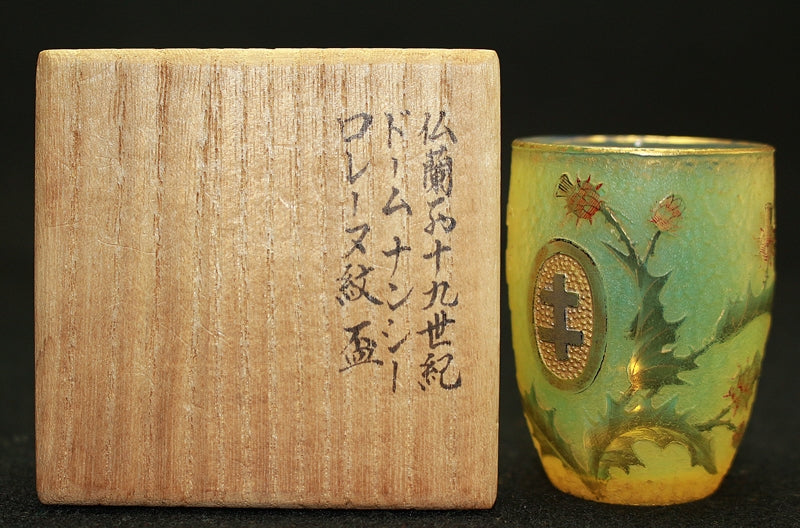 仏蘭西十九世紀
ドームナンシー
ロレーヌ紋盃